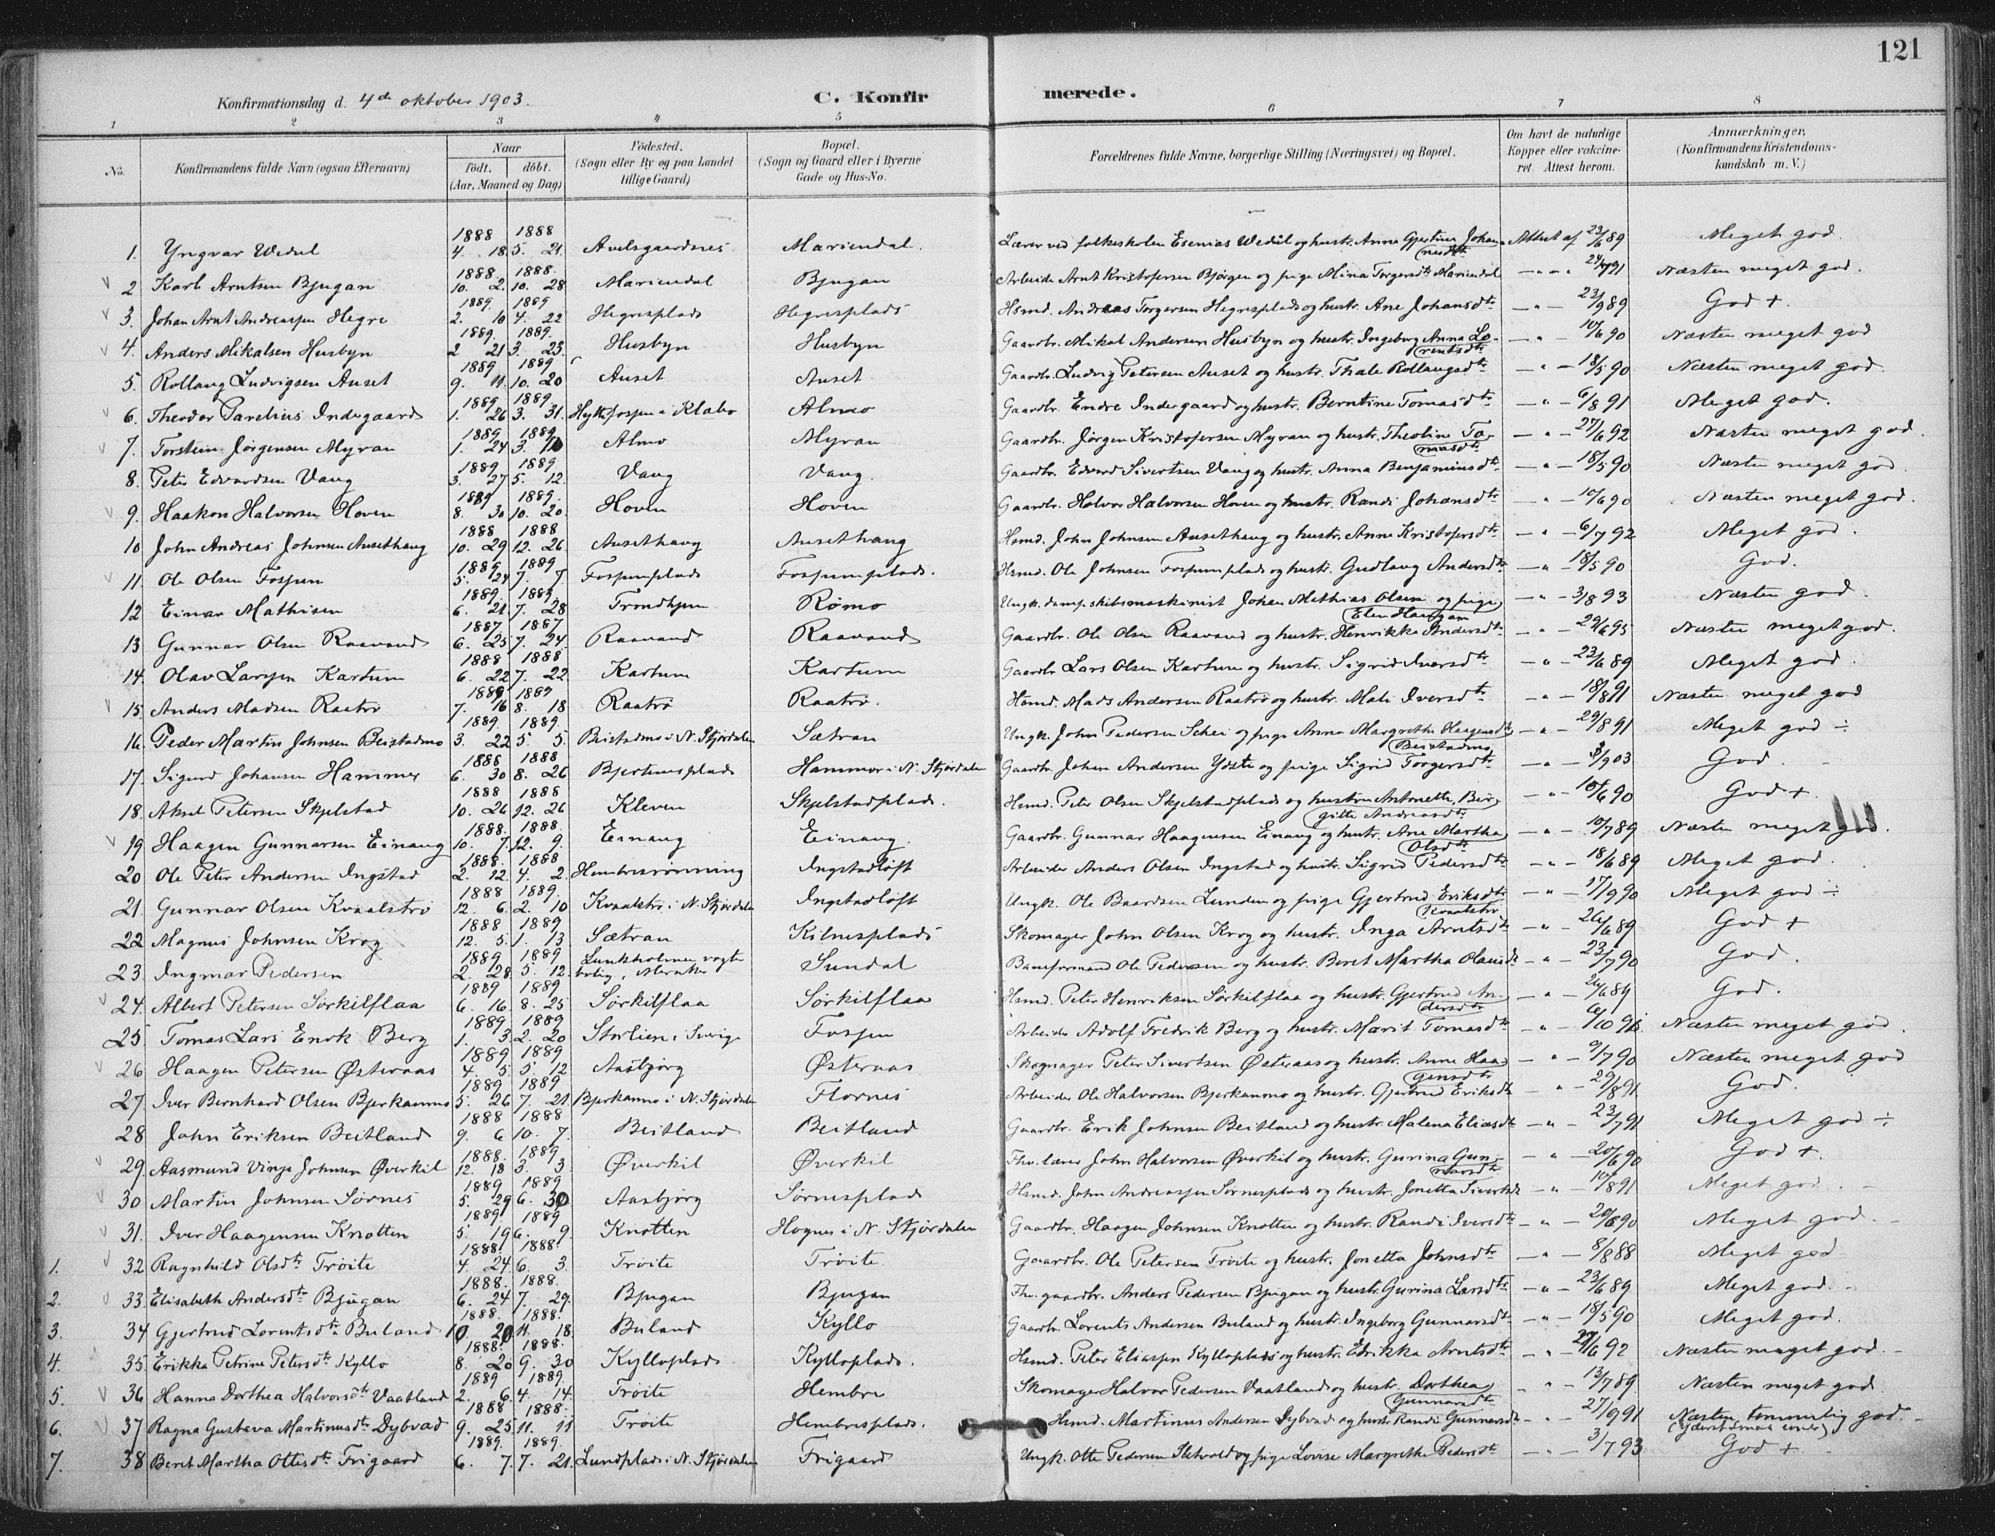 121
Konfirmationsdag d. 4de oktober 1903.
C. Konfirmerede.
1 2 3 4 5 6 7 8
No.
Konfirmandens fulde Navn (ogsaa Efternavn)
Naar
født. døbt.
(Aar, Maaned og Dag)
Fødested.
(Sogn eller By og paa Landet
tillige Gaard)
Bopæl.
(Sogn og Gaard eller i Byerne
Gade og Hus-No.
Forældrenes fulde Navne, borgerlige Stilling (Næringsvei) og Bopæl.
Om havt de naturlige
Kopper eller vakcine-
ret. Attest herom.
Anmærkninger,
(Konfirmandens Kristendoms-
kundskab m. V.)
1. Yngvar Wedul 1888 4. 18 1888 5. 21. Avelsgaardsnes Mariendal Lærer ved folkeskolen Esenias Wedul og hustr. Anne Gjertine Johannesdtr Attest af 23/6 89 Meget god.
2 Karl Arntsen Bjugan 1888 10. 2. 1888. 10. 28 Mariendal Bjugan Arbeider Arnt Kristofersen Bjørgen og pige Mina Torgersdtr Mariendal — " — 24/7 91 Næsten meget god.
3. Johan Arnt Andreassen Hegre 1889. 2. 10 1889 4. 22 Hegresplads Hegresplads Hsmd. Andreas Torgersen Hegresplads og hustr. Ane Johansdtr — " — 23/9 89 God +
4. Anders Mikalsen Husbyn 1889. 2 21 1889. 3. 23. Husbyn Husbyn Gaardbr. Mikal Andersen Husbyn og hustr. Ingeborg Anna Lorentsdtr — " — 10/6 90 Næsten meget god
5. Rollaug Ludvigsen Auset 1889 9. 11. 1889 10. 20 Auset Auset Gaardbr. Ludvig Petersen Auset og hustr. Thale Rollaugsdtr — " — 18/5 90 Næsten meget god.
6. Theodor Parelius Indegaard 1889 1. 26 1889. 3. 31. Hyttefossen i Klæbo Almo Gaardbr. Endre Indergaard og hustr. Berntine Tomasdtr — " — 6/8 91 Meget god.
7. Torstein Jørgensen Myran 1889 1. 24 1889. 3. 10 Almo Myran Gaardbr. Jørgen Kristofersen Myran og hustr. Theoline Tomasdtr — " — 27/6 92 Næsten meget god.
8. Peter Edvardsen Vang 1889 3. 27 1889 5. 12. Vang Vang. Gaardbr. Edvard Sivertsen Vang og hustr. Anna Benjaminsdtr — " — 18/5 90 Næsten meget god.
9. Haakon Halvorsen Hoven 1889 8. 30 1889. 10. 20. Hoven Hoven Gaardbr. Halvor Halvorsen Hoven og hustr. Randi Johansdtr — " — 10/6 90 Næsten meget god.
10 John Andreas Johnsen Ausethaug 1888 10. 29 1888 12. 26. Ausethaug Ausethaug Hsmd. John Johnsen Ausethaug og hustr. Anne Kristofersdtr — " — 6/7 92 Meget god.
11. Ole Olsen Fossum 1889 5. 24 1889 7. 7. Fossumplads Fossumplads. Hsmd. Ole Johnsen Fossumplads og hustr. Gudlaug Andersdtr — " — 18/5 90 God.
12 Einar Mathisen 1889. 6. 21 1889. 7. 28 Trondhjem Rømo Ungk. dampskibsmaskinist Johan Mathias Olsen og pige — " — 3/8 93 Næsten god.
13 Gunnar Olsen Raavand 1887 6. 25 1887 7. 24. Raavand Raavand Gaardbr. Ole Olsen Raavand og hustr. Henrikka Andersdtr — " — 29/6 95 Næsten meget god.
14. Olav Larssen Kartum 1888 6. 22 1888 7. 22 Kartum Kartum Gaardbr Lars Olsen Kartum og hustr. Sigrid Iversdtr — " — 23/6 89 Meget god.
15. Anders Madsen Raatrø 1889 7. 16 1889 8. 18 Raatrø Raatrø. Hsmd. Mads Andersen Raatrø og hustr. Mali Iversdtr — " — 18/8 91 Næsten meget god
16. Peder Martin Johnsen Beistadmo 1889. 3. 22 1889. 5. 5. Beistadmo i N. Stjørdalen Sætran Ungk. John Pedersen Schei og pige Anna Margrethe Haagensdtr Beistadmo — " — 29/8 91 Meget god ÷
17. Sigurd Johansen Hammer 1888 6. 30 1888 8. 26 Bjertnesplads Hammer i N. Stjørdalen Gaardbr. Johan Andersen Ydste og pige Sigrid Torgersdtr — " — God.
18. Aksel Petersen Skjelstad 1888 10. 26 1888 12. 26 Kleven Skjelstadplads. Hsmd. Peter Olsen Skjelstadplads og hustru Antonette Birgitte Andreasdtr — " — 10/6 90 God +
19 Haagen Gunnarsen Einang 1888. 10. 7. 1888. 12. 9. Einang Einang. Gaardbr. Gunnar Haagensen Einang og hustr. Ane Martha Olsdtr — " — 10/7 89 Næsten meget god.
20 Ole Peter Andersen Ingstad 1888. 2. 12. 1888 4. 2. Hembresrønning Ingstadløft Arbeider Anders Olsen Ingstad og hustr. Sigrid Pedersdtr — " — 18/6 89 Meget god.
21. Gunnar Olsen Kvaalstrø 1888 12. 6. 1889. 2. 10 Kvaalstr. i N. Stjørdalen Ingstadløft Ungk. Ole Baardsen Lunden og pige Gjertrud Eriksdtr Kvaalstrø — " — 17/9 90 Meget god ÷
22 Magnus Johnsen Krog 1888 12. 5. 1889 1. 13 Sætran Kilnesplads Skomager John Olsen Krog og hustr. Inga Arntsdtr — " — 26/6 89 God +
23. Ingmar Pedersen 1889 2. 28. 1889 5. 12. Sundal Baneformand Ole Pedersen og hustr. Beret Martha Olausdtr — " — 23/7 90 God.
24. Albert Petersen Sørkilflaa 1889 6. 16. 1889 8. 25 Sørkilflaa Sørkilflaa Hsmd. Peter Henriksen Sørkilflaa og hustr. Gjertrud Andersdtr — " — God.
25 Tomas Lars Enok Berg 1889 1. 3. 1889 2. 20 Storlien i Sverige Fossen Arbeider Adolf Fredrik Berg og hustr. Marit Tomasdtr — " — Næsten meget god.
26 Haagen Petersen Østeraas 1889 4. 5. 1889 5. 12 Aasbjørg Østeraas Skogmager Peter Sivertsen Østeraas og hustr. Anne Haagensdtr — " — 9/7 90 Næsten meget god
27. Iver Bernhard Olsen Bjerkanmo 1889. 5. 26 1889 7. 21. Bjerkanmo i N. Stjørdalen Flornes Arbeider Ole Halvorsen Bjerkanmo og hustr. Gjertrud Eriksdtr — " — 29/8 91 God.
28 John Eriksen Beitland 1888 9. 6 1888 10. 7. Beitland Beitland Gaardbr. Erik Johnsen Beitland og hustr. Malena Eliasdtr — " — 23/7 91 Meget god ÷
29. Aasmund Vinje Johnsen Øverkil 1888. 12. 18 1889. 3. 3. Øverkil Øverkil Fhv. lærer John Halvorsen Øverkil og hustr. Gurina Gunnarsdtr — " — 20/6 90 God +.
30 Martin Johnsen Sørnes 1889 5. 29 1889 6. 30 Aasbjørg Sørnesplads Hsmd. John Andreassen Sørnesplads og hustr. Jonetta Sivertsdtr — " — 10/8 91 Meget god.
31. Iver Haagensen Knotten 1889 5. 19 1889 6. 9. Knotten Hognes i N. Stjørdalen Gaardbr. Haagen Johnsen Knotten og hustr. Randi Iversdtr — " — 20/8 90 Meget god.
1. 32 Ragnhild Olsdtr Trøite 1888. 4. 24 1888. 6. 3. Trøite Trøite Gaardbr. Ole Petersen Trøite og hustr. Jonetta Johnsdtr — " — 8/8 88 Meget god
2. 33. Elisabeth Andersdtr Bjugan 1888. 6. 24 1888. 7. 29. Bjugan Bjugan Fhv. gaardbr. Anders Pedersen Bjugan og hustr. Gurina Larsdtr — " — 23/6 89 Meget god.
3. 34 Gjertrud Lorentsdtr Buland 1888. 10. 20 1888. 11. 18. Buland Kyllo Gaardbr. Lorents Andersen Buland og hustr. Ingeborg Gunnarsdtr — " — 18/5 90 Meget god.
4. 35 Erikka Petrine Petersdtr Kyllo 1888. 8. 20 1888. 9. 30 Kylloplads Kylloplads. Hsmd. Peter Eliassen Kylloplads og hustr. Edrikka Arntsdtr — " — 27/6 92 Næsten meget god.
5. 36 Hanna Dorthea Halvorsdtr Vaatland 1889 2. 6. 1889. 4. 14. Trøite Hembre Skomager Halvor Pedersen Vaatland og hustr. Dorthea Gunnarsdtr — " — 13/7 89 Næsten meget god.
6. 37 Ragna Gustava Martinusdtr Dybvad 1888 9. 25 1888. 11. 11 Trøite Hembresplads. Hsmd. Martinus Andersen Dybvad og hustr. Randi Gunnarsdtr — " — 27/9 91 Næsten temmelig god.
7. 38 Beret Martha Ottesdtr Frigaard 1889. 6. 7. 1889. 7. 21. Lundplads i N. Stjørdalen Frigaard Ungk. Otte Pedersen og pige Lovise Margrethe Pedersdtr — " — 3/7 93 God +